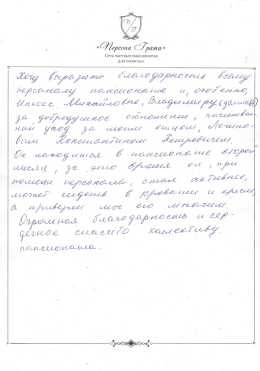 «Персона Грата»
Сеть частных пансионатов
для пожилых
Хочу выразить благодарность всему
персоналу пансионата и, особенно,
Инессе Михайловне, Владимиру
за добродушное отношение, качествен-
ный уход за моим отцом,
Константином Петровичем.
Он находится в пансионате второй
месяц, за это время он, при
помощи персонала, стал активнее,
может сидеть в кровати и кресле,
а привезли мы его лежачим.
Огромная благодарность и сер-
дечное спасибо коллективу
пансионата.